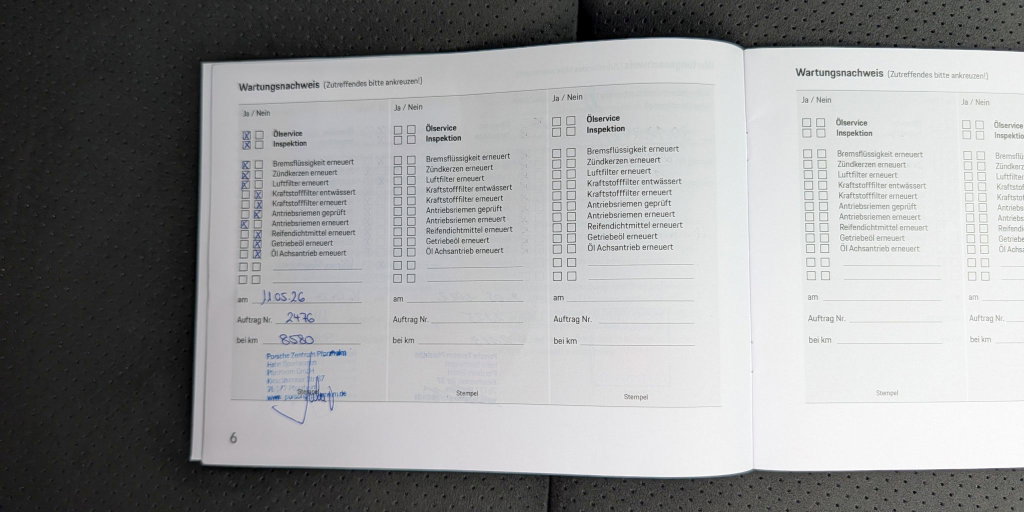 Wartungsnachweis (Zutreffendes bitte ankreuzen!)
Ja / Nein
Ölservice
Inspektion
Bremsflüssigkeit erneuert
Zündkerzen erneuert
Luftfilter erneuert
Kraftstofffilter entwässert
Kraftstofffilter erneuert
Antriebsriemen geprüft
Antriebsriemen erneuert
Reifendichtmittel erneuert
Getriebeöl erneuert
Öl Achsantrieb erneuert
am 11.05.26
Auftrag Nr. 2476
bei km 8580
Porsche Zentrum Pforzheim
Pforzheim GmbH
Stempel
6
Ja / Nein
Ölservice
Inspektion
Bremsflüssigkeit erneuert
Zündkerzen erneuert
Luftfilter erneuert
Kraftstofffilter entwässert
Kraftstofffilter erneuert
Antriebsriemen geprüft
Antriebsriemen erneuert
Reifendichtmittel erneuert
Getriebeöl erneuert
Öl Achsantrieb erneuert
am
Auftrag Nr.
bei km
Stempel
Ja / Nein
Ölservice
Inspektion
Bremsflüssigkeit erneuert
Zündkerzen erneuert
Luftfilter erneuert
Kraftstofffilter entwässert
Kraftstofffilter erneuert
Antriebsriemen geprüft
Antriebsriemen erneuert
Reifendichtmittel erneuert
Getriebeöl erneuert
Öl Achsantrieb erneuert
am
Auftrag Nr.
bei km
Stempel
Wartungsnachweis (Zutreffendes bitte ankreuzen!)
Ja / Nein
Ölservice
Inspektion
Bremsflüssigkeit erneuert
Zündkerzen erneuert
Luftfilter erneuert
Kraftstofffilter entwässert
Kraftstofffilter erneuert
Antriebsriemen geprüft
Antriebsriemen erneuert
Reifendichtmittel erneuert
Getriebeöl erneuert
Öl Achsantrieb erneuert
am
Auftrag Nr.
bei km
Stempel
Ja / Nein
Ölservice
am
Auftrag Nr.
bei km